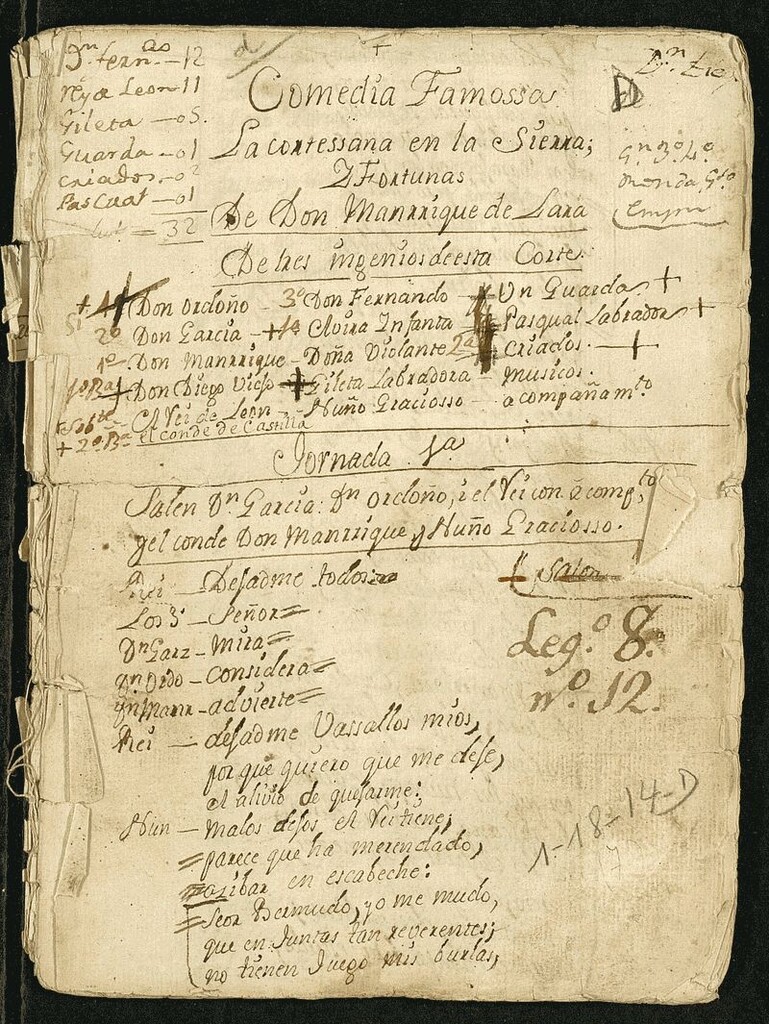 Dn. fern.do — 12
rey de Leon 11
Gileta — 05.
Guarda — 01
criados — 02
Pascual — 01
= 32
Comedia Famossa
La cortessana en la Sierra;
I Fortunas
De Don Manrrique de Lara
De tres ingenios de esta Corte.
+ Don Ordoño — 3º Don Fernando — Un Guarda +
2º Don Garcia — + 1ª Elvira Infanta — Pasqual Labrador +
1º — Don Manrrique — Doña Violante 2ª criados. — +
Don Diego Viejo + Gileta Labradora — musicos.
El Rei de Leon — Nuño Graciosso — acompañamto
+ 2º Bª el conde de Castilla
Jornada 1a
Salen Dn Garcia: Dn Ordoño, i el Rei con acompto
y el conde Don Manrrique y Nuño Graciosso.
Rei — Dejadme todos
+ salon
Los 3 — Señor =
Dn Garz — mira =
Dn Ordo — considera =
Dn Manr — advierte =
Rei — dejadme Vassallos mios,
porque quiero que me deje,
el alivio de quejarme:
Nun — malos dejos el Rei tiene,
= parece que ha merendado,
= azibar en escabeche:
= Seor Bermudo, yo me mudo,
que en Juntas tan reverentes;
no tienen Juego mis burlas,
Leg.º 8.º
nº. 12.
1-18-14-D
7